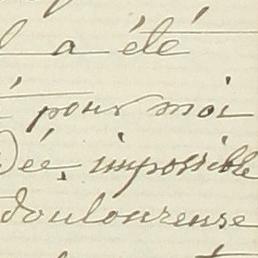 a été
pour moi
ée, impossible
douloureuse